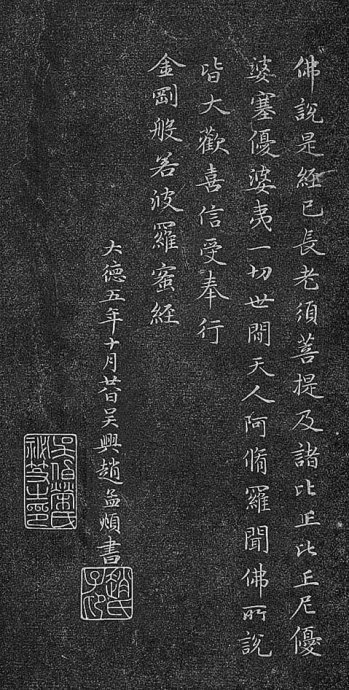 佛說是經已長老須菩提及諸比丘比丘尼優
婆塞優婆夷一切世間天人阿脩羅聞佛所說
皆大歡喜信受奉行
金剛般若波羅蜜經
大德五年十月廿日吳興趙孟頫書
趙氏子印